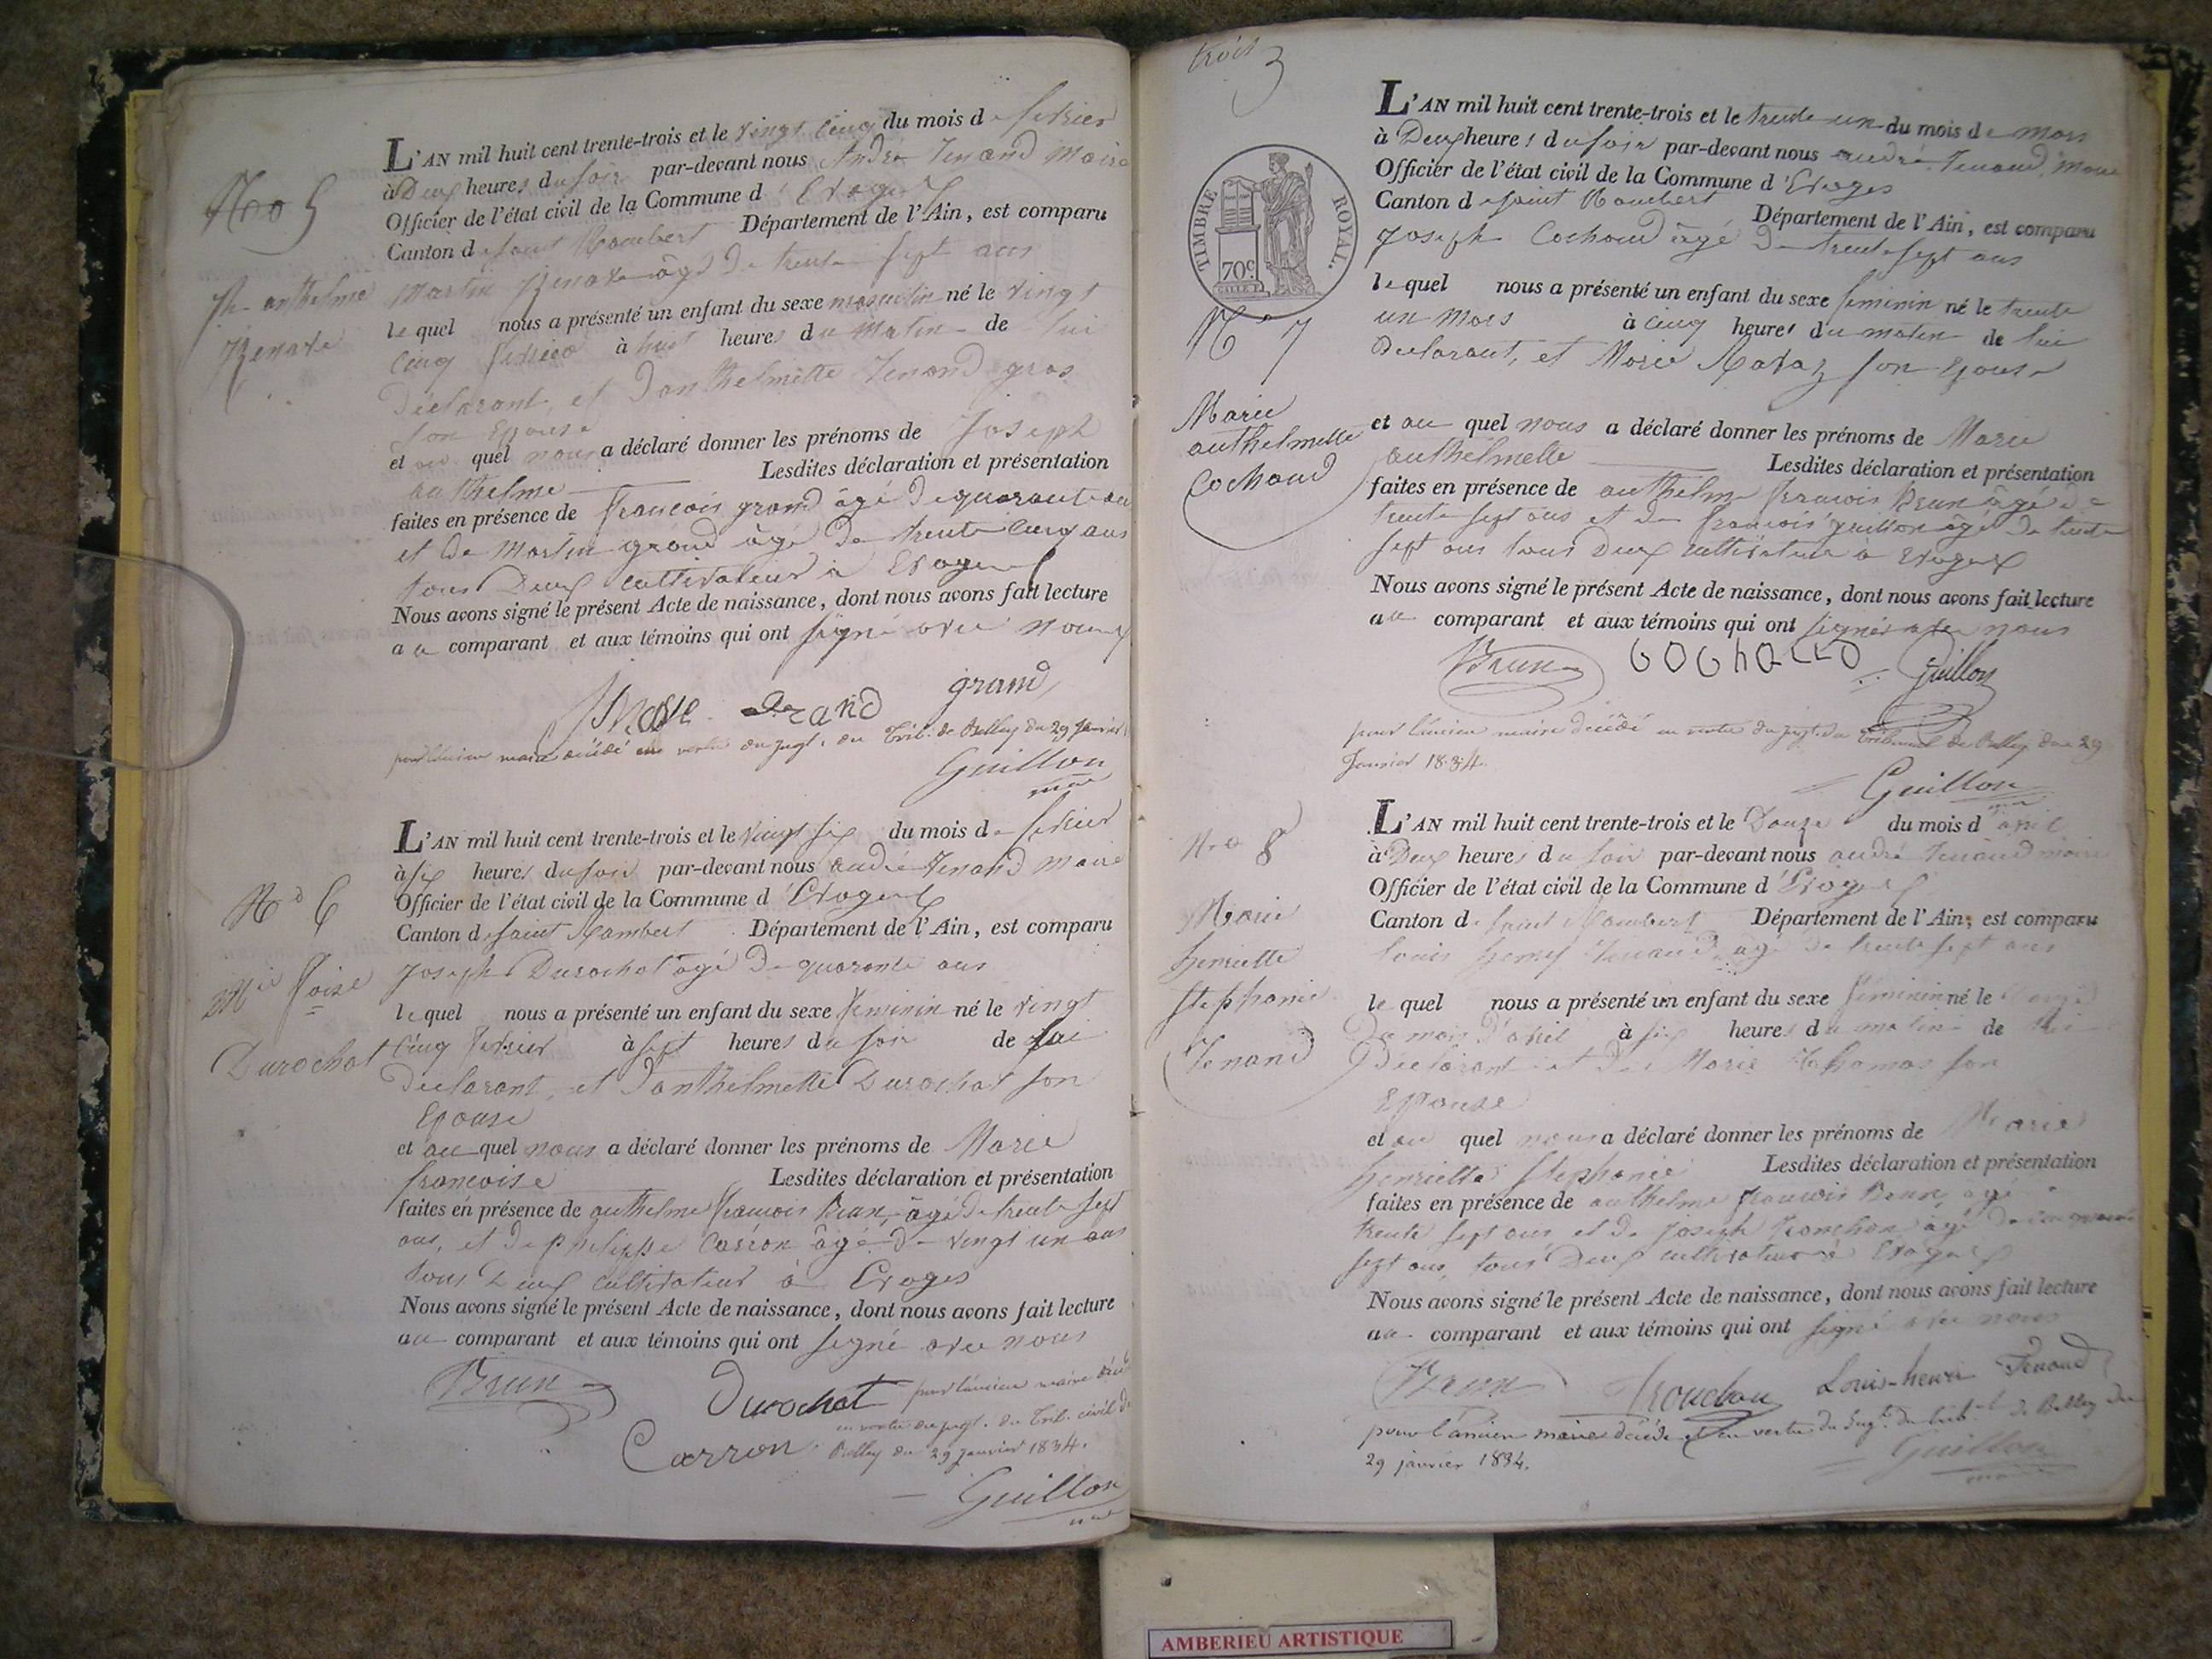 No 5
Jh anthelme
L'AN mil huit cent trente-trois et le vingt cinq du mois de fevrier
à Deux heures du soir par-devant nous André Tenand Maire
Officier de l'état civil de la Commune d'Evoges
Canton de saint Rambert Département de l'Ain, est comparu
Martin âgé de trente sept ans
le quel nous a présenté un enfant du sexe masculin né le vingt
cinq fevrier à huit heures du matin de lui
Déclarant, et Danthelmette Tenand gros
son Epouse
et au quel nous a déclaré donner les prénoms de Joseph
anthelme Lesdites déclaration et présentation
faites en présence de francois grand âgé de quarante ans
et de Martin grand âgé de trente cinq ans
tous Deux cultivateur à Evoges
Nous avons signé le présent Acte de naissance, dont nous avons fait lecture
au comparant et aux témoins qui ont signé avec nous
Grand grand
pour l'ancien maire décédé en vertu du jugt. du Trib. de Belley du 29 janvier
Guillon
No 6
Mie foise
Durochat
L'AN mil huit cent trente-trois et le vingt six du mois de fevrier
à six heures du soir par-devant nous andré Tenand Maire
Officier de l'état civil de la Commune d'Evoges
Canton de saint Rambert Département de l'Ain, est comparu
Joseph Durochat âgé de quarante ans
le quel nous a présenté un enfant du sexe feminin né le vingt
cinq fevrier à sept heures du soir de lui
Déclarant, et Danthelmette Durochat son
Epouse
et au quel nous a déclaré donner les prénoms de Marie
francoise Lesdites déclaration et présentation
faites en présence de anthelme francois Brun, âgé de trente sept
ans, et de Carron âgé de vingt un ans
tous Deux cultivateur à Evoges
Nous avons signé le présent Acte de naissance, dont nous avons fait lecture
au comparant et aux témoins qui ont signé avec nous
Brun Durochat pour l'ancien maire
en vertu du jugt. du Trib. civil de
Carron Belley du 29 janvier 1834.
Guillon
trois 3
TIMBRE ROYAL.
70c
No 7
Marie
anthelmette
Cochaud
L'AN mil huit cent trente-trois et le trente un du mois de Mars
à Deux heures du soir par-devant nous andré Tenand, Maire
Officier de l'état civil de la Commune d'Evoges
Canton de saint Rambert Département de l'Ain, est comparu
Joseph Cochaud âgé de trente sept ans
le quel nous a présenté un enfant du sexe feminin né le trente
un Mars à cinq heures du matin de lui
Déclarant, et Marie Ravaz son Epouse
et au quel nous a déclaré donner les prénoms de Marie
anthelmette Lesdites déclaration et présentation
faites en présence de anthelme francois Brun âgé de
trente sept ans et de francois guillon âgé de trente
sept ans tous Deux cultivateur à Evoges
Nous avons signé le présent Acte de naissance, dont nous avons fait lecture
au comparant et aux témoins qui ont signés avec nous
Brun Guillon
pour l'ancien maire décédé en vertu du jugt. du Tribunal de Belley du 29
Janvier 1834.
Guillon
No 8
Marie
henriette
stephanie
Tenand
L'AN mil huit cent trente-trois et le Douze du mois d'avril
à Deux heures du soir par-devant nous andré Tenand maire
Officier de l'état civil de la Commune d'Evoges
Canton de saint Rambert Département de l'Ain, est comparu
louis henry Tenand, âgé de trente sept ans
le quel nous a présenté un enfant du sexe féminin né le
Du mois d'avril à six heures du matin de lui
Déclarant et de Marie Thomas son
Epouse
et au quel nous a déclaré donner les prénoms de Marie
henriette stephanie Lesdites déclaration et présentation
faites en présence de anthelme francois Brun, âgé
trente sept ans et de Joseph âgé de
sept ans, tous Deux cultivateur à Evoges
Nous avons signé le présent Acte de naissance, dont nous avons fait lecture
au comparant et aux témoins qui ont signé avec nous
Brun Louis-henri Tenand
pour l'ancien maire décédé et en vertu du Jugt. du trib.al de Belley du
29 janvier 1834.
Guillon
AMBERIEU ARTISTIQUE